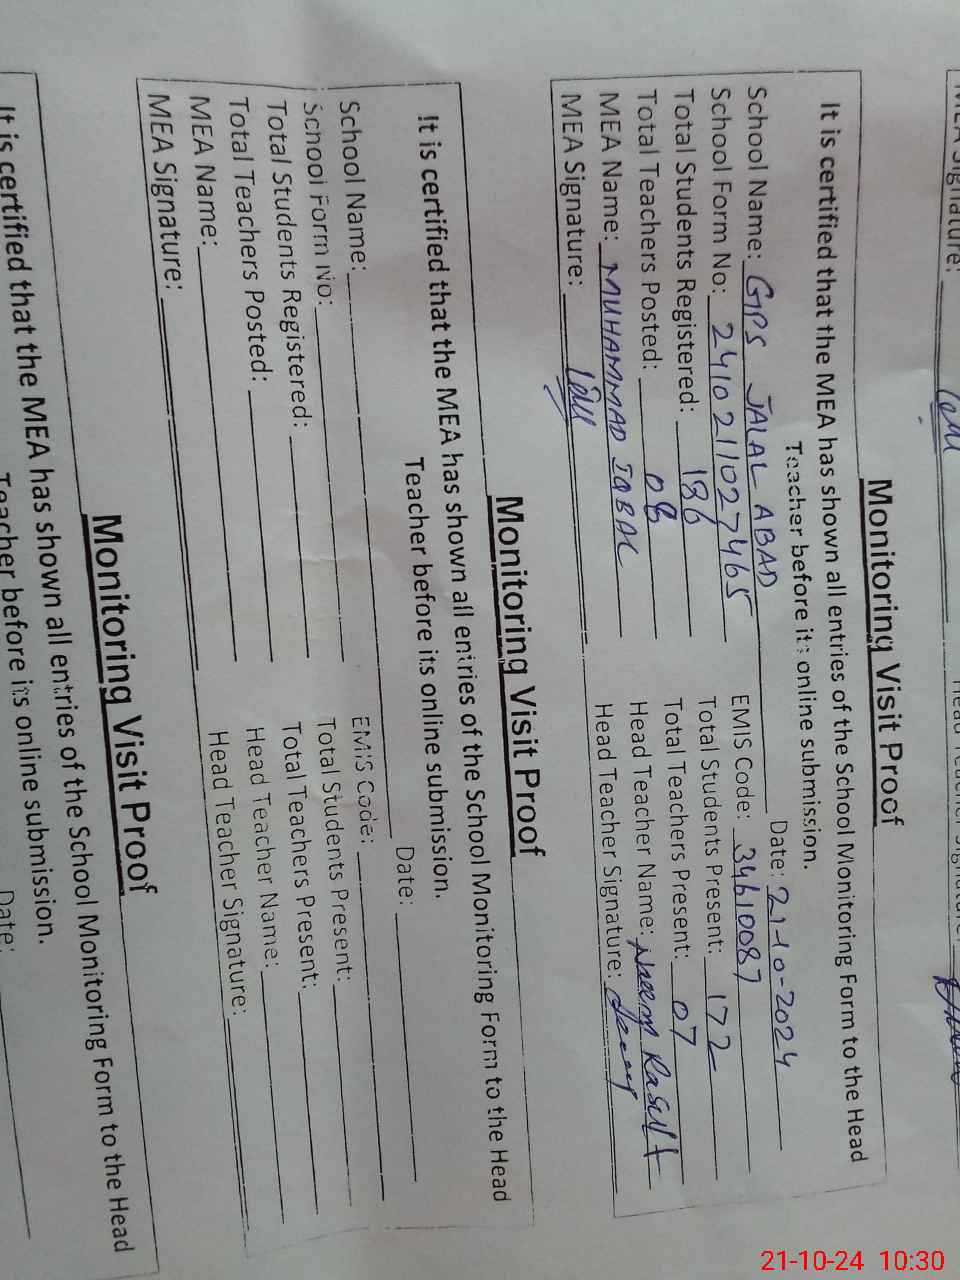 MEA Signature:
Monitoring Visit Proof
It is certified that the MEA has shown all entries of the School Monitoring Form to the Head
Teacher before its online submission.
Date: 21-10-2024
School Name: GPS JALAL ABAD
School Form No: 2410211027465 EMIS Code: 34610087
Total Students Registered: 186 Total Students Present: 172
Total Teachers Posted: 08 Total Teachers Present: 07
MEA Name: MUHAMMAD IQBAL Head Teacher Name: Naeem Rasul
MEA Signature: Head Teacher Signature:
Monitoring Visit Proof
It is certified that the MEA has shown all entries of the School Monitoring Form to the Head
Teacher before its online submission.
Date:
School Name:
School Form No: EMIS Code:
Total Students Registered: Total Students Present:
Total Teachers Posted: Total Teachers Present:
MEA Name: Head Teacher Name:
MEA Signature: Head Teacher Signature:
Monitoring Visit Proof
It is certified that the MEA has shown all entries of the School Monitoring Form to the Head
Teacher before its online submission.
Date:
21-10-24 10:30